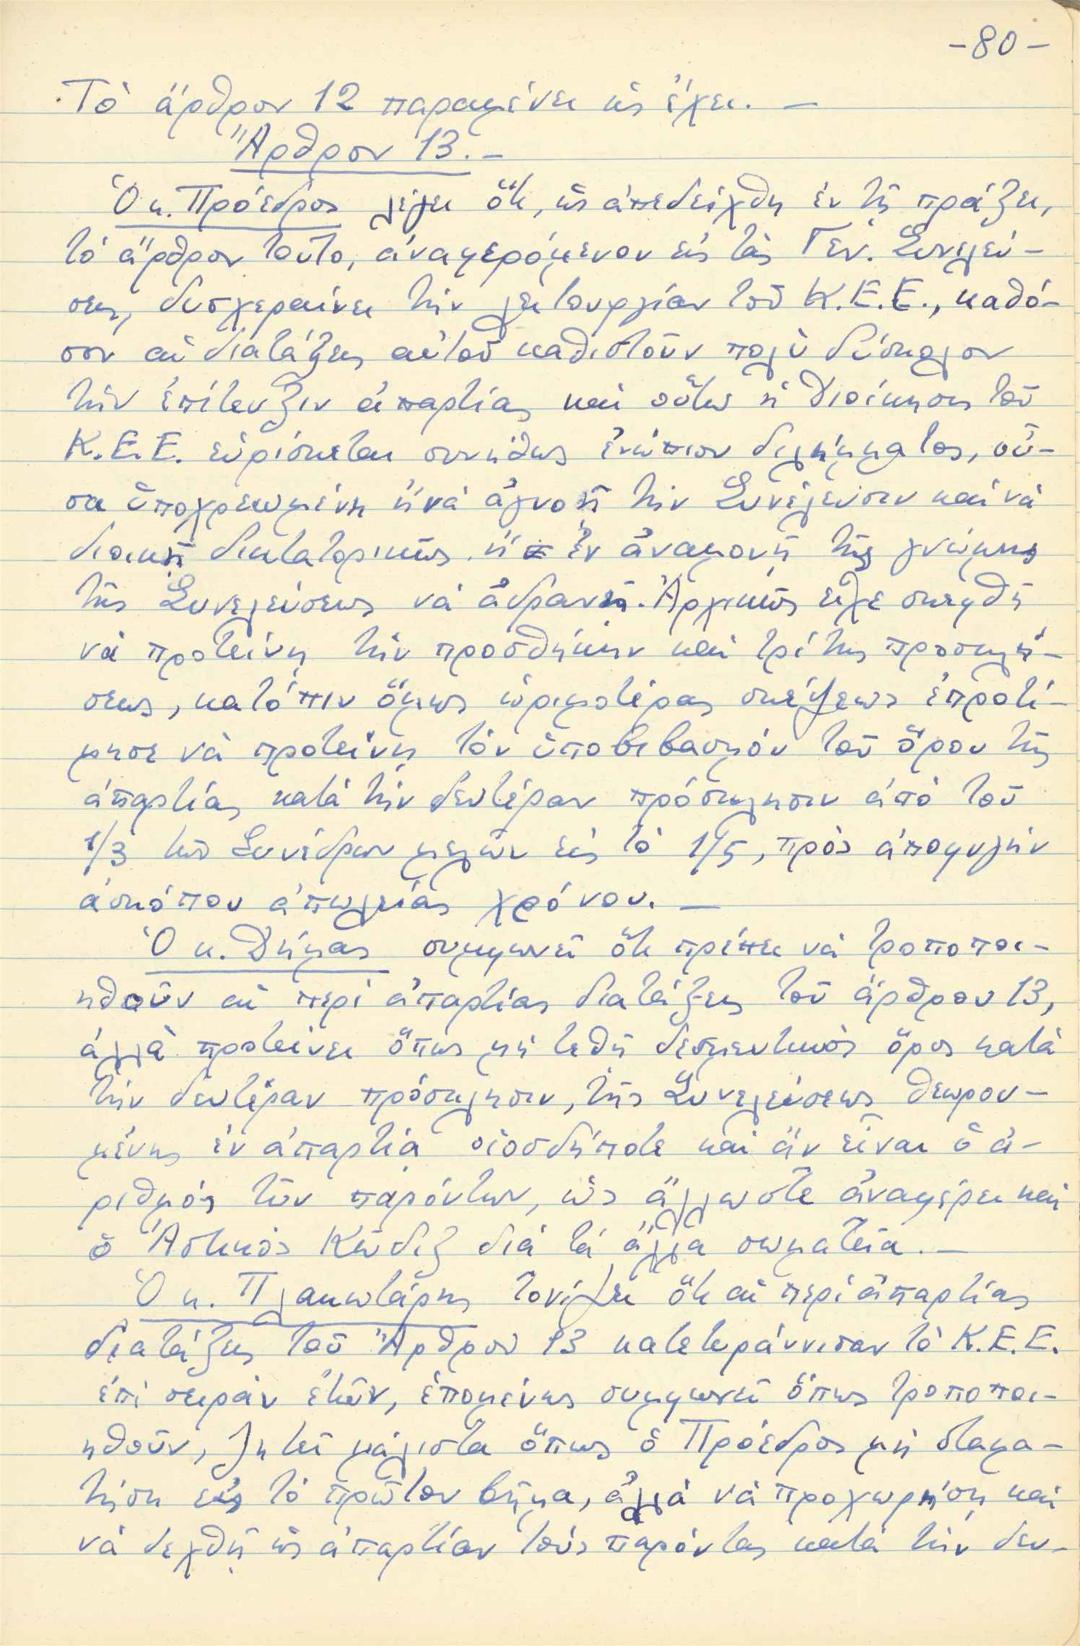 -80-
Τὸ ἄρθρον 12 παραμένει ὡς ἔχει. —
Ἄρθρον 13.—
Ὁ κ. Πρόεδρος λέγει ὅτι, ὡς ἀπεδείχθη ἐν τῇ πράξει,
τὸ ἄρθρον τοῦτο, ἀναφερόμενον εἰς τὰς Γεν. Συνελεύ-
σεις, δυσχεραίνει τὴν λειτουργίαν τοῦ Κ.Ε.Ε., καθό-
σον αἱ διατάξεις αὐτοῦ καθιστοῦν πολὺ δύσκολον
τὴν ἐπίτευξιν ἀπαρτίας καὶ οὕτω ἡ Διοίκησις τοῦ
Κ.Ε.Ε. εὑρίσκεται συνήθως ἐνώπιον διλήμματος, οὖ-
σα ὑποχρεωμένη ἢ νὰ ἀγνοῇ τὴν Συνέλευσιν καὶ νὰ
διοικῇ δικτατορικῶς ἢ ἐν ἀναμονῇ τῆς γνώμης
τῆς Συνελεύσεως νὰ ἀδρανῇ. Ἀρχικῶς εἶχε σκεφθῆ
νὰ προτείνῃ τὴν προσθήκην καὶ τρίτης προσκλή-
σεως, κατόπιν ὅμως ὡριμοτέρας σκέψεως ἐπροτί-
μησε νὰ προτείνῃ τὸν ὑποβιβασμὸν τοῦ ὅρου τῆς
ἀπαρτίας κατὰ τὴν δευτέραν πρόσκλησιν ἀπὸ τοῦ
1/3 τῶν Συνέδρων μελῶν εἰς τὸ 1/5, πρὸς ἀποφυγὴν
ἀσκόπου ἀπωλείας χρόνου. —
Ὁ κ. Δήμας συμφωνεῖ ὅτι πρέπει νὰ τροποποι-
ηθοῦν αἱ περὶ ἀπαρτίας διατάξεις τοῦ ἄρθρου 13,
ἀλλὰ προτείνει ὅπως μὴ τεθῇ δεσμευτικὸς ὅρος κατὰ
τὴν δευτέραν πρόσκλησιν, τῆς Συνελεύσεως θεωρου-
μένης ἐν ἀπαρτίᾳ οἱοσδήποτε καὶ ἂν εἶναι ὁ ἀ-
ριθμὸς τῶν παρόντων, ὡς ἄλλωστε ἀναφέρει καὶ
ὁ Ἀστικὸς Κῶδιξ διὰ τὰ ἄλλα σωματεῖα.—
Ὁ κ. Πλακωτάρης τονίζει ὅτι αἱ περὶ ἀπαρτίας
διατάξεις τοῦ Ἄρθρου 13 κατετυράννισαν τὸ Κ.Ε.Ε.
ἐπὶ σειρὰν ἐτῶν, ἑπομένως συμφωνεῖ ὅπως τροποποι-
ηθοῦν, ζητεῖ μάλιστα ὅπως ὁ Πρόεδρος μὴ σταμα-
τήσῃ εἰς τὸ πρῶτον βῆμα, ἀλλὰ νὰ προχωρήσῃ καὶ
νὰ δεχθῇ ὡς ἀπαρτίαν τοὺς παρόντας κατὰ τὴν δευ-